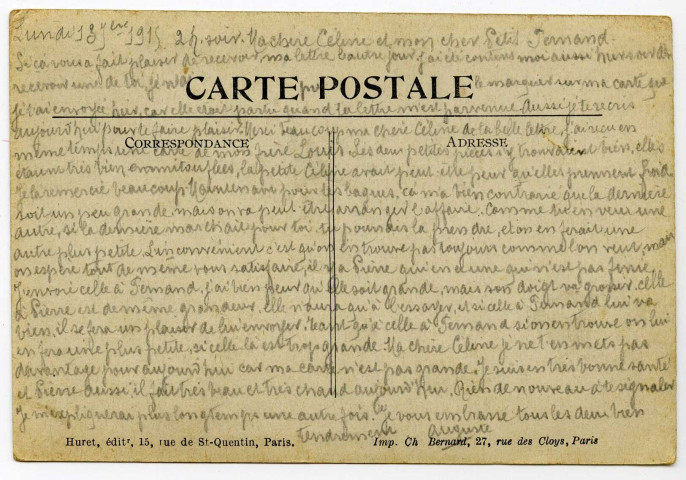 Lundi 13 7bre 1915 2 h. soir. Ma chère Céline et mon cher Petit Fernand.
Si ça vous a fait plaisir de recevoir ma lettre l'autre jour, j'ai été content moi aussi hier soir de
recevoir une de toi, je n'ai le marquer sur ma carte que
CARTE POSTALE
je t'ai envoyée hier, car elle était partie quand ta lettre m'est parvenue. Aussi je te récris
aujourd'hui pour te faire plaisir. Merci beaucoup ma chérie Céline de ta belle lettre, j'ai reçu en
même temps une carte de mon frère Louis. Les deux petites pièces s'y trouvaient bien, elles
CORRESPONDANCE
ADRESSE
étaient très bien emmitouflées, la petite Céline avait peut-être peur qu'elles prennent froid
Je la remercie beaucoup. Maintenant pour les bagues, ça m'a bien contrarié que la dernière
soit un peu grande, mais on va peut être arranger l'affaire. Comme tu en veux une
autre, si la dernière marchait pour toi, tu pourrais la prendre, et on en ferait une
autre plus petite. L'inconvénient c'est qu'on en trouve pas toujours comme l'on veut, mais
on espère tout de même vous satisfaire, il y a Pierre qui en a une qui n'est pas finie,
J'envoie celle à Fernand, j'ai bien peur qu'elle soit grande, mais son doigt va grossir, celle
à Pierre est de même grandeur, elle n'aura qu'à l'essayer, et si celle à Fernand lui va
bien, il se fera un plaisir de lui envoyer. Tant qu'à celle à Fernand si on en trouve on lui
en fera une plus petite, si celle là est trop grande. Ma chère Céline je ne t'en mets pas
davantage pour aujourd'hui car ma carte n'est pas grande. Je suis en très bonne santé
et Pierre aussi, il fait très beau et très chaud aujourd'hui. Rien de nouveau à te signaler
Je m'expliquerai plus longtemps une autre fois. Je vous embrasse tous les deux bien
tendrement Auguste
Huret, éditr, 15, rue de St-Quentin, Paris.
Imp. Ch Bernard, 27, rue des Cloys, Paris